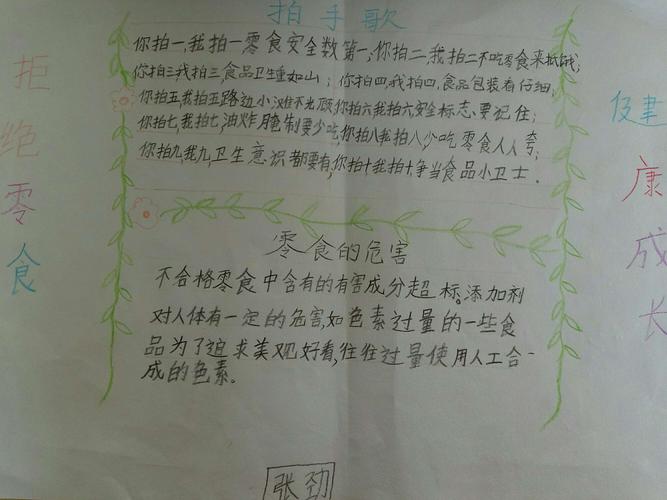 拍手歌
拒绝零食
你拍一,我拍一零食安全数第一;你拍二,我拍二不吃零食来抵饿;
你拍三我拍三,食品卫生重如山;你拍四,我拍四,食品包装看仔细,
你拍五,我拍五路边小滩不光顾,你拍六我拍六安全标志要记住;
你拍七,我拍七,油炸腌制要少吃,你拍八我拍八少吃零食人人夸;
你拍九我九,卫生意识都要有,你拍十我拍十,争当食品小卫士.
健康成长
零食的危害
不合格零食中含有的有害成分超标。添加剂
对人体有一定的危害,如色素过量的一些食
品为了追求美观好看,往往过量使用人工合
成的色素。
张劲